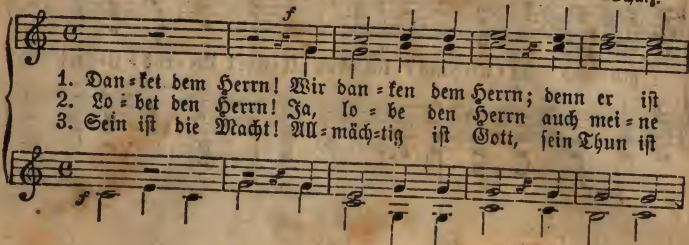 Schulz.
f
1. Dan⸗ket dem Herrn! Wir dan⸗ken dem Herrn; denn er iſt
2. Lo⸗bet den Herrn! Ja, lo⸗be den Herrn auch mei⸗ne
3. Sein iſt die Macht! All⸗mäch⸗tig iſt Gott, ſein Thun iſt
f